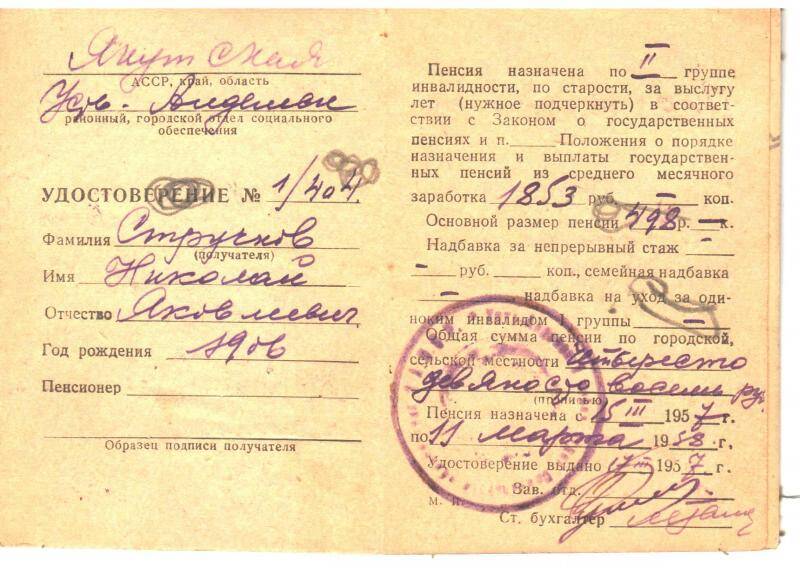 Якутская
АССР, край, область
районный, городской отдел социального
обеспечения
УДОСТОВЕРЕНИЕ № 1/404.
Фамилия Стручков
(получателя)
Имя Николай
Отчество Яковлевич
Год рождения
Пенсионер
Образец подписи получателя
Пенсия назначена по II группе
инвалидности, по старости, за выслугу
лет (нужное подчеркнуть) в соответ-
ствии с Законом о государственных
пенсиях и п. Положения о порядке
назначения и выплаты государствен-
ных пенсий из среднего месячного
заработка 1853 руб. — коп.
Основной размер пенсии 498 р. — к.
Надбавка за непрерывный стаж —
— руб. коп., семейная надбавка
— надбавка на уход за оди-
ноким инвалидом I группы —
Общая сумма пенсии по городской,
сельской местности четыреста
девяносто восемь руб.
(прописью)
Пенсия назначена с 15 III 1957 г.
по 11 марта 1958 г.
Удостоверение выдано 17 III 1957 г.
Зав. отд.
М. П.
Ст. бухгалтер